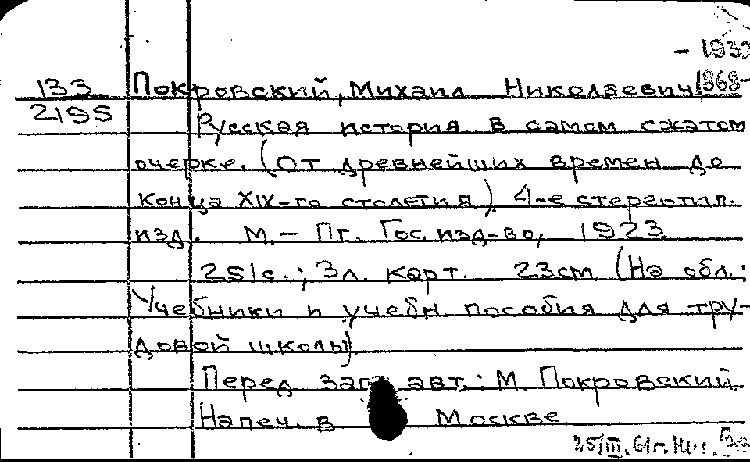 - 1932
133 Покровский, Михаил Николаевич, 1868-
2195
Русская история в самом сжатом
очерке. (От древнейших времен до
конца XIX-го столетия). 4-е стереотип.
изд. М.- Пг. Гос. изд-во, 1923
251 с.; 3 л. карт. 23 см (На обл.:
Учебники и учебн. пособия для тру-
довой школы)
Перед загл. авт.: М. Покровский
Напеч. в Москве
25/III.61г.